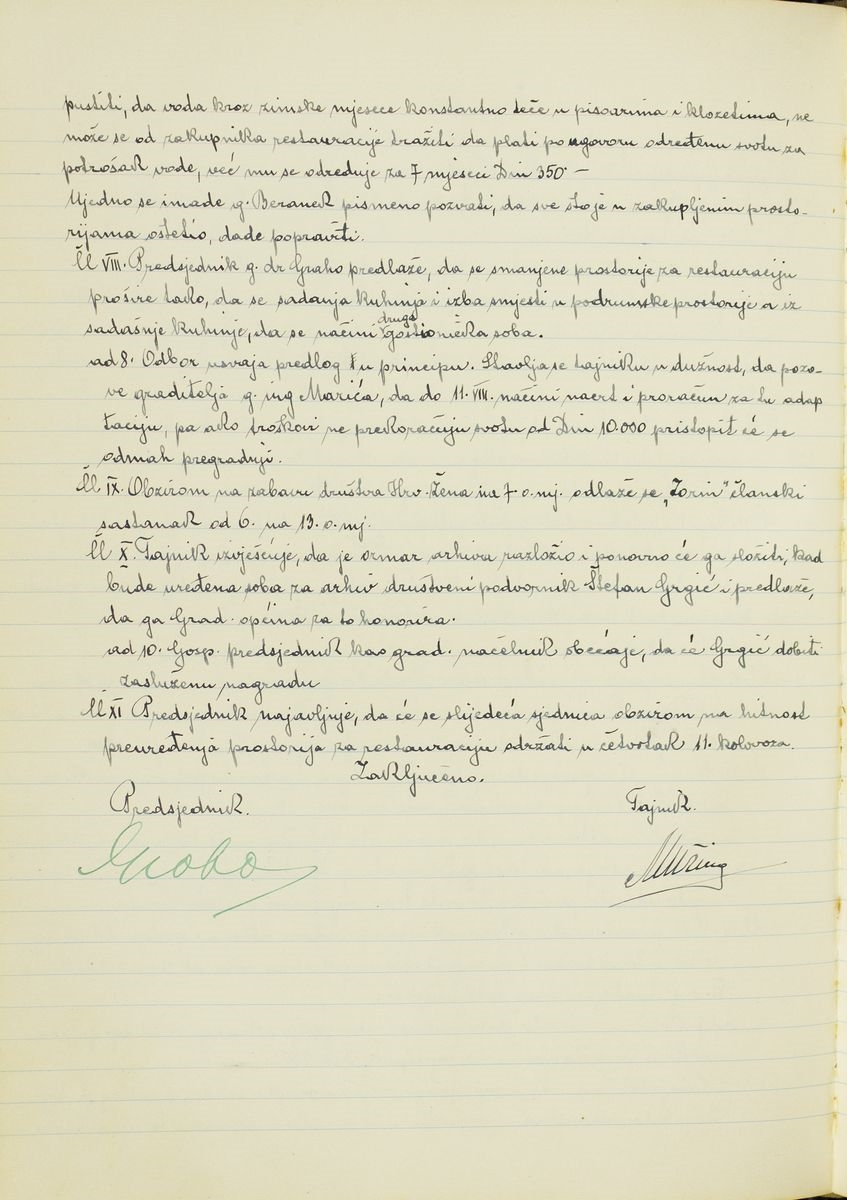 pustiti, da voda kroz zimske mjesece konstantno teče u pisoarima i klozetima, ne
može se od zakupnika restauracije tražiti da plati po ugovoru određenu svotu za
potrošak vode, već mu se određuje za 7 mjeseci Din 350·–
Ujedno se imade g. Beranek pismeno pozvati, da sve što je u zakupljenim prosto-
rijama oštetio, dade popraviti.
Čl VIII. Predsjednik g. dr Graho predlaže, da se smanjene prostorije za restauraciju
prošire tako, da se sadanja kuhinja i izba smjesti u podrumske prostorije a iz
sadašnje kuhinje, da se načini druga gostionička soba.
ad 8. Odbor usvaja predlog u principu. Stavlja se tajniku u dužnost, da pozo-
ve graditelja g. ing Marića, da do 11. VIII. načini nacrt i proračun za tu adap
taciju, pa ako troškovi ne prekoračuju svotu od Din 10.000 pristopit će se
odmah pregradnji.
Čl IX. Obzirom na zabavu društva Hrv. Žena na 7 o. mj. odlaže se „Zorin" članski
sastanak od 6. na 13. o. mj.
Čl X. Tajnik izvješćuje, da je ormar arhiva razložio i ponovno će ga složiti, kad
bude uređena soba za arhiv društveni podvornik Štefan Grgić i predlaže,
da ga Grad. općina za to honorira.
ad 10. Gosp. predsjednik kao grad. načelnik obećaje, da će Grgić dobiti
zasluženu nagradu
Čl XI Predsjednik najavljuje, da će se slijedeća sjednica obzirom na hitnost
preuređenja prostorija za restauraciju održati u četvrtak 11. kolovoza.
Zaključeno.
Predsjednik. Tajnik.